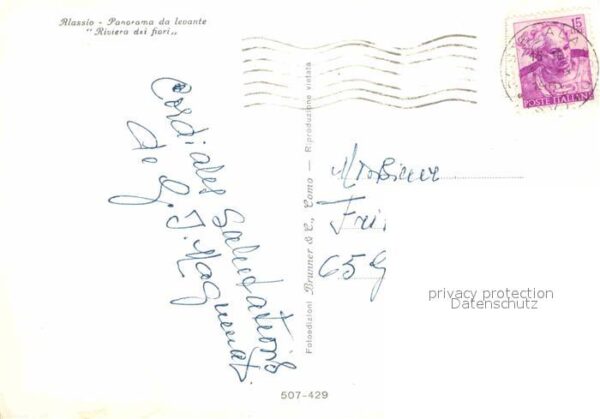 Alassio - Panorama da levante
"Riviera dei fiori"
15
POSTE ITALIANE
Cordiales Salutations
de G. J. Magnenat
Fotoedizioni Brunner & C., Como — Riproduzione vietata
Monsieur
65G
privacy protection
Datenschutz
507-429